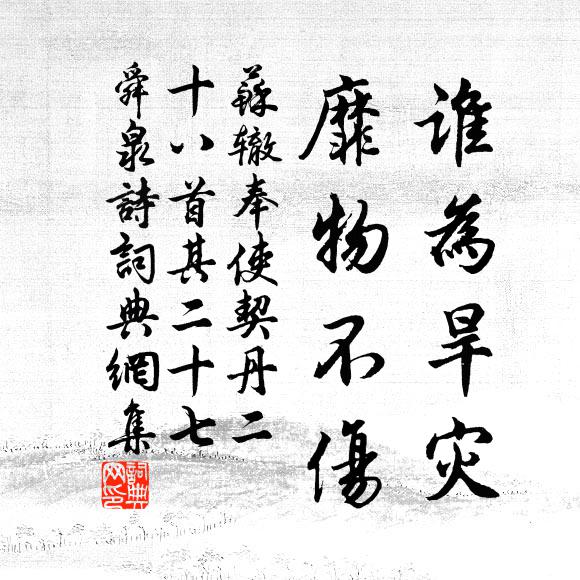 誰為旱灾
靡物不傷
蘇辙奉使契丹二
十八首其二十七
舜泉詩詞典網集
詞典网印